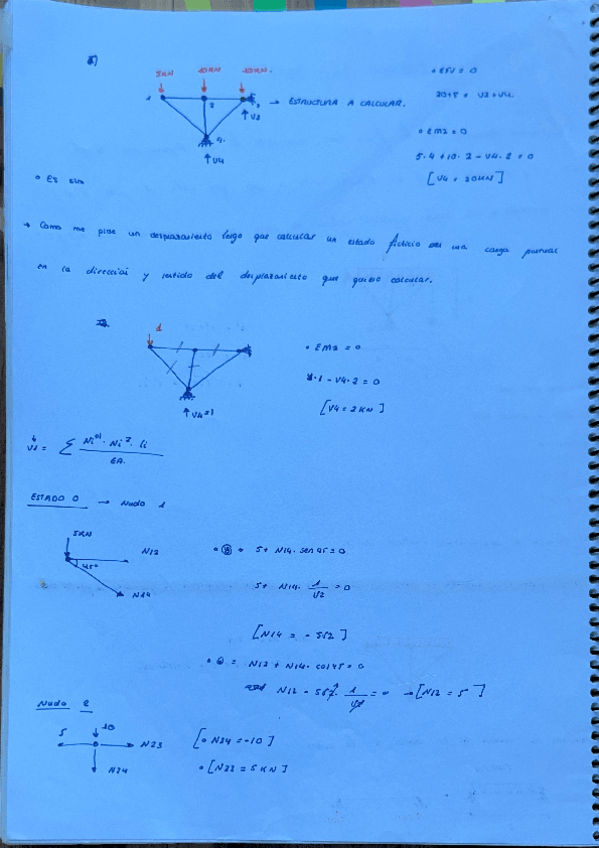 5KN 10KN 10KN.
1 2 3 → ESTRUCTURA A CALCULAR.
↑V3
4.
↑V4
• EFV = 0
20+5 = V3+V4.
• EM3 = 0
5·4+10·2-V4·2=0
[V4 = 20KN]
• Es
→ Como me pide un desplazamiento tengo que calcular un estado ficticio con una carga puntual
en la dirección y sentido del desplazamiento que quiero calcular.
1
↑V4=1
• EM3 = 0
·1-V4·2=0
[V4=2KN]
= Σ Ni · Ni · li
EA.
ESTADO 0 → Nudo 1
5KN
N12
45º
N14
5+ N14· sen45=0
5+ N14· 1/√2 =0
[N14 = -5√2]
N12 + N14· cos45=0
N12 - 5√2· 1/√2 = 0 → [N12 = 5]
Nudo 2
5 10 N23
N24
[• N24=-10]
• [N23 = 5KN]